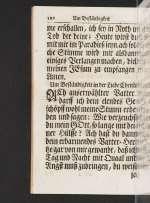 180 Um Beständigkeit
me erschallen, ich sey in Noth und
Tod der deine; Heute wirst du
mit mir im Paradiß seyn, ach solche
Stimme wird mir alsdann
einiges Verlangen machen, dich
meinen JEsum zu empfangen
Amen.
Um Beständigkeit in der Liebe
ACh auserwählter Vatter
darff ich dem elendes Ge
schöpff wohl meine Stimm erhe
ben und sagen: Wie verziehest
du mein GOtt, so lange mit dei
ner Hülffe? Ach hast du dann
dein erbarmendes Vatter-Hertz
gar von mir gewendet, daß ich
Tag und Nacht mit Quaal und
Angst muß zubringen, du weist